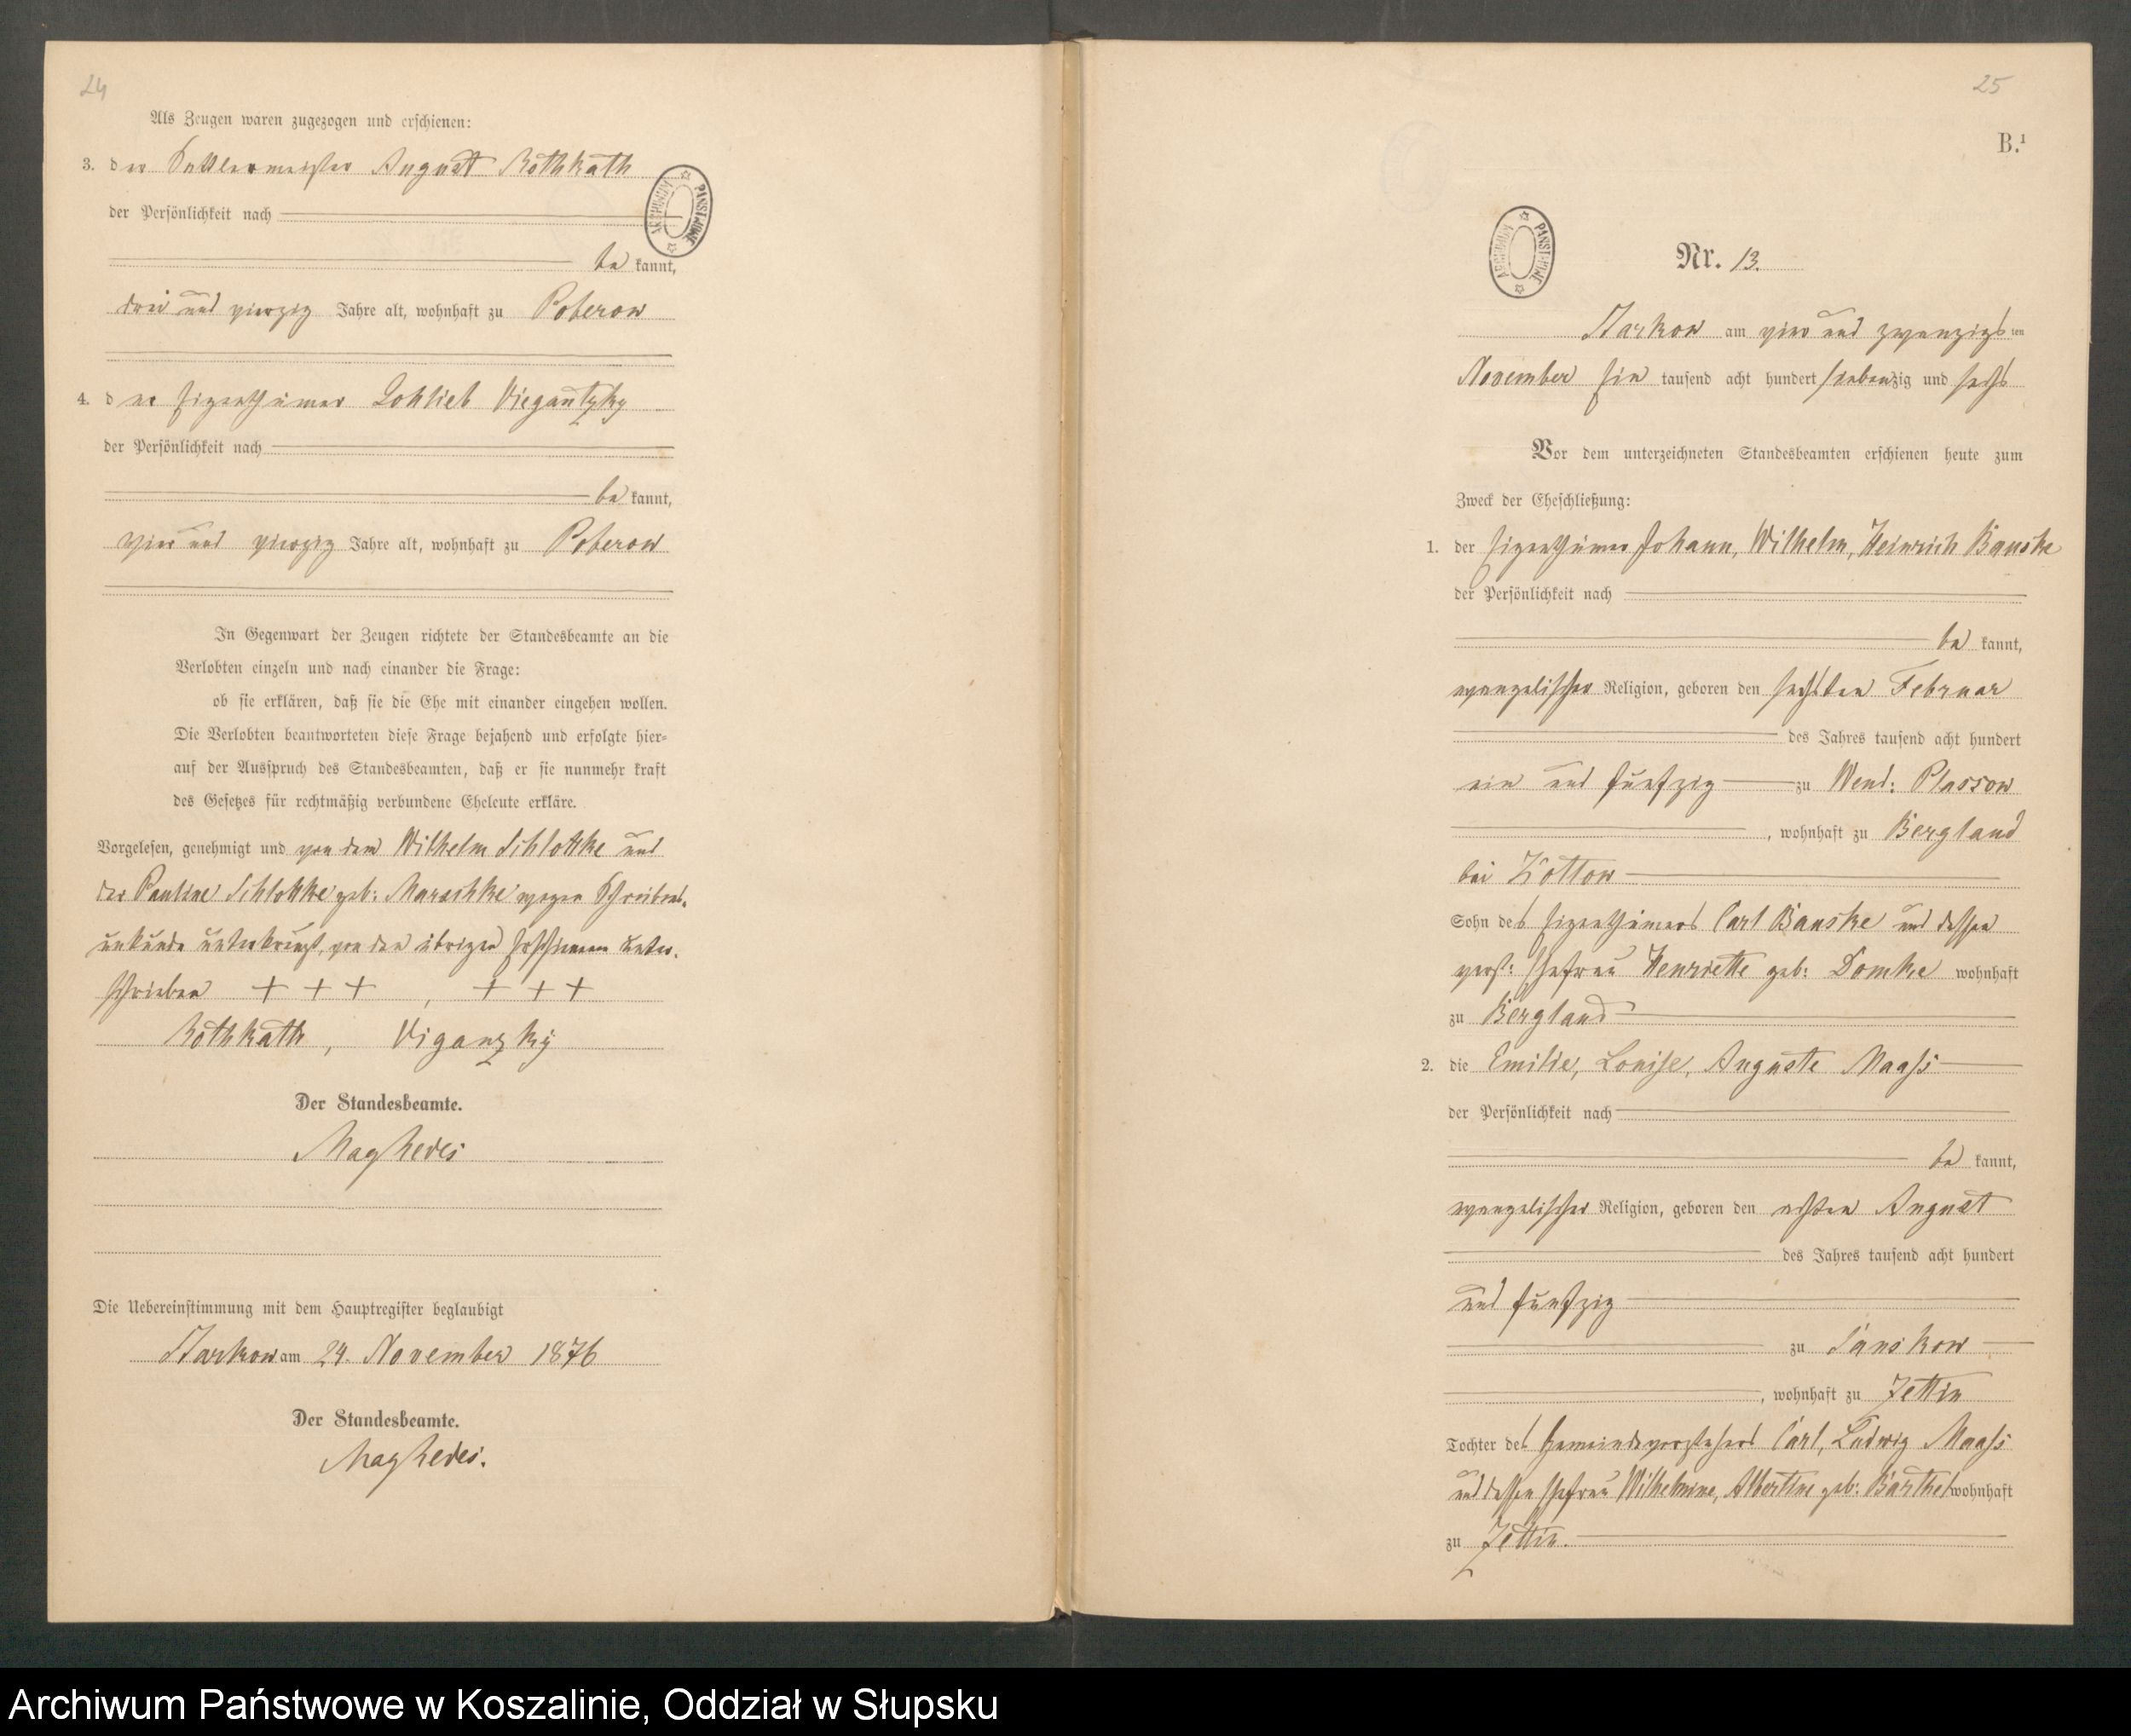 24
Als Zeugen waren zugezogen und erschienen:
3. der Sattlermeister August Rothkath
der Persönlichkeit nach
be kannt,
drei und vierzig Jahre alt, wohnhaft zu Poberow
4. der Eigenthümer Gottlieb Viegantzky
der Persönlichkeit nach
be kannt,
vier und vierzig Jahre alt, wohnhaft zu Poberow
In Gegenwart der Zeugen richtete der Standesbeamte an die
Verlobten einzeln und nach einander die Frage:
ob sie erklären, daß sie die Ehe mit einander eingehen wollen.
Die Verlobten beantworteten diese Frage bejahend und erfolgte hier=
auf der Ausspruch des Standesbeamten, daß er sie nunmehr kraft
des Gesetzes für rechtmäßig verbundene Eheleute erkläre.
Vorgelesen, genehmigt und von dem Wilhelm Schlottke und
der Pauline Schlottke geb: Maraschke wegen Schreibens-
unkunde unterkreuzt, von den übrigen Erschienenen unter-
schrieben + + + , + + +
Rothkath, Viganzky
Der Standesbeamte.
Die Uebereinstimmung mit dem Hauptregister beglaubigt
Starkow am 24. November 1876
Der Standesbeamte.
ARCHIWUM PAŃSTWOWE
25
B.¹
ARCHIWUM PAŃSTWOWE
Nr. 13.
Starkow am vier und zwanzigsten
November Ein tausend acht hundert siebenzig und sechs
Vor dem unterzeichneten Standesbeamten erschienen heute zum
Zweck der Eheschließung:
1. der Eigenthümer Johann, Wilhelm, Heinrich Banske
der Persönlichkeit nach
be kannt,
evangelischer Religion, geboren den sechsten Februar
des Jahres tausend acht hundert
ein und funfzig zu Wend: Plassow
, wohnhaft zu Bergland
bei Zottow
Sohn des Eigenthümers Carl Banske und dessen
verst: Ehefrau Henriette geb: Domke wohnhaft
zu Bergland
2. die Emilie, Louise, Auguste Maass
der Persönlichkeit nach
be kannt,
evangelischer Religion, geboren den achten August
des Jahres tausend acht hundert
und funfzig
zu Sanskow
, wohnhaft zu Zettin
Tochter des Gemeindevorstehers Carl, Ludwig Maass
und dessen Ehefrau Wilhelmine, Albertine geb: Barthel wohnhaft
zu Zettin.
Archiwum Państwowe w Koszalinie, Oddział w Słupsku